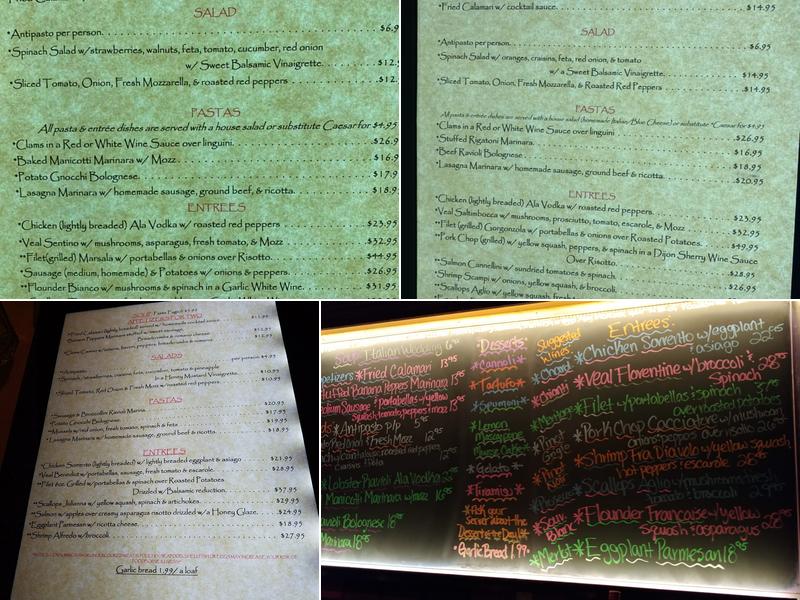 SALAD
*Antipasto per person. $6.9
*Spinach Salad w/strawberries, walnuts, feta, tomato, cucumber, red onion
w/ Sweet Balsamic Vinaigrette. $12.
*Sliced Tomato, Onion, Fresh Mozzarella, & roasted red peppers $12.
PASTAS
All pasta & entrée dishes are served with a house salad or substitute Caesar for $4.95
*Clams in a Red or White Wine Sauce over linguini. $26.9
*Baked Manicotti Marinara w/ Mozz. $16.9
*Potato Gnocchi Bolognese. $17.9
*Lasagna Marinara w/ homemade sausage, ground beef, & ricotta. $18.9
ENTREES
*Chicken (lightly breaded) Ala Vodka w/ roasted red peppers $23.95
*Veal Sentino w/ mushrooms, asparagus, fresh tomato, & Mozz $32.95
**Filet (grilled) Marsala w/ portabellas & onions over Risotto. $44.95
*Sausage (medium, homemade) & Potatoes w/ onions & peppers. $26.95
**Flounder Bianco w/ mushrooms & spinach in a Garlic White Wine. $31.95
*Fried Calamari w/ cocktail sauce. $14.95
SALAD
*Antipasto per person. $6.95
*Spinach Salad w/ oranges, craisins, feta, red onion, & tomato
w/ a Sweet Balsamic Vinaigrette. $14.95
*Sliced Tomato, Onion, Fresh Mozzarella, & Roasted Red Peppers $14.95
PASTAS
All pasta & entrée dishes are served with a house salad (homemade Italian/Blue Cheese) or substitute *Caesar for $4.95
*Clams in a Red or White Wine Sauce over linguini $26.95
*Stuffed Rigatoni Marinara. $16.95
*Beef Ravioli Bolognese. $18.95
*Lasagna Marinara w/ homemade sausage, ground beef, & ricotta. $20.95
ENTREES
*Chicken (lightly breaded) Ala Vodka w/ roasted red peppers. $23.95
*Veal Saltimbocca w/ mushrooms, prosciutto, tomato, escarole, & Mozz $32.95
**Filet (grilled) Gorgonzola w/ portabellas & onions over Roasted Potatoes. $49.95
**Pork Chop (grilled) w/ yellow squash, peppers, & spinach in a Dijon Sherry Wine Sauce
Over Risotto. $28.95
**Salmon Cannellini w/ sundried tomatoes & spinach.
*Shrimp Scampi w/ onions, yellow squash, & broccoli. $26.95
**Scallops Aglio w/ yellow squash, fresh
SOUP Pasta Fagioli $5.95
APPETIZERS FOR TWO
*Fried Calamari (lightly breaded) served w/ homemade cocktail sauce $11.95
$12.95
$12.95
SALADS
*Antipasto per person $4.95
*Spinach, cranberries, craisins, feta, cucumber, tomato & pineapple
In a Honey Mustard Vinaigrette. $10.95
*Sliced Tomato, Red Onion & Fresh Mozz w/ roasted red peppers. $10.95
PASTAS
*Sausage & Broccolini Ravioli Marina $20.95
*Potato Gnocchi Bolognese. $17.95
w/ red onion, fresh tomato, spinach & feta $19.95
*Lasagna Marinara w/ homemade sausage, ground beef & ricotta. $18.95
ENTREES
*Chicken Sorrento (lightly breaded) w/ lightly breaded eggplant & asiago $21.95
*Veal Benedict w/ portabellas, sausage, fresh tomato & escarole. $28.95
**Filet 8oz. Grilled w/ portabellas & spinach over Roasted Potatoes
Drizzled w/ Balsamic reduction. $37.95
**Scallops Julianna w/ yellow squash, spinach & artichokes. $29.95
**Salmon w/ apples over creamy asparagus risotto drizzled w/ a Honey Glaze. $24.95
*Eggplant Parmesan w/ ricotta cheese. $18.95
**Shrimp Alfredo w/ broccoli. $27.95
Garlic bread 1.99/ a loaf
Soup: Italian Wedding 6.95
*Fried Calamari 13.95
Stuffed Banana Peppers Marinara 13.95
Sausage w/ portabellas w/ yellow
squash, tomato, peppers & mozz 13.95
*Antipasto p/p 5.95
Fresh Mozz 12.95
craisins feta 12.95
*Lobster Ravioli Ala Vodka 23.95
Manicotti Marinara w/ mozz 16.95
Ravioli Bolognese 18.95
Desserts:
*Cannoli
*Tartufo
*Spumoni
*Lemon
Mascarpone
Mousse Cake
*Gelato
*Tiramisu
*Ask your
Server about the
Dessert of the Day!
*Garlic Bread 1.99
Suggested
Wines:
*Chard
*Chianti
*Pinot
*Sauv.
Blanc
*Merlot
Entrees:
*Chicken Sorrento w/ eggplant
& asiago 22.95
*Veal Florentine w/ broccoli &
Spinach 28.95
*Filet w/ portabellas & spinach
over roasted potatoes
*Pork Chop Cacciatore w/ mushroom
onions peppers over risotto
*Shrimp Fra Diavolo w/ yellow squash
hot peppers & escarole 26.95
*Scallops Aglio w/ mushrooms
tomato & broccoli
*Flounder Francaise w/ yellow
squash & asparagus
*Eggplant Parmesan 18.95